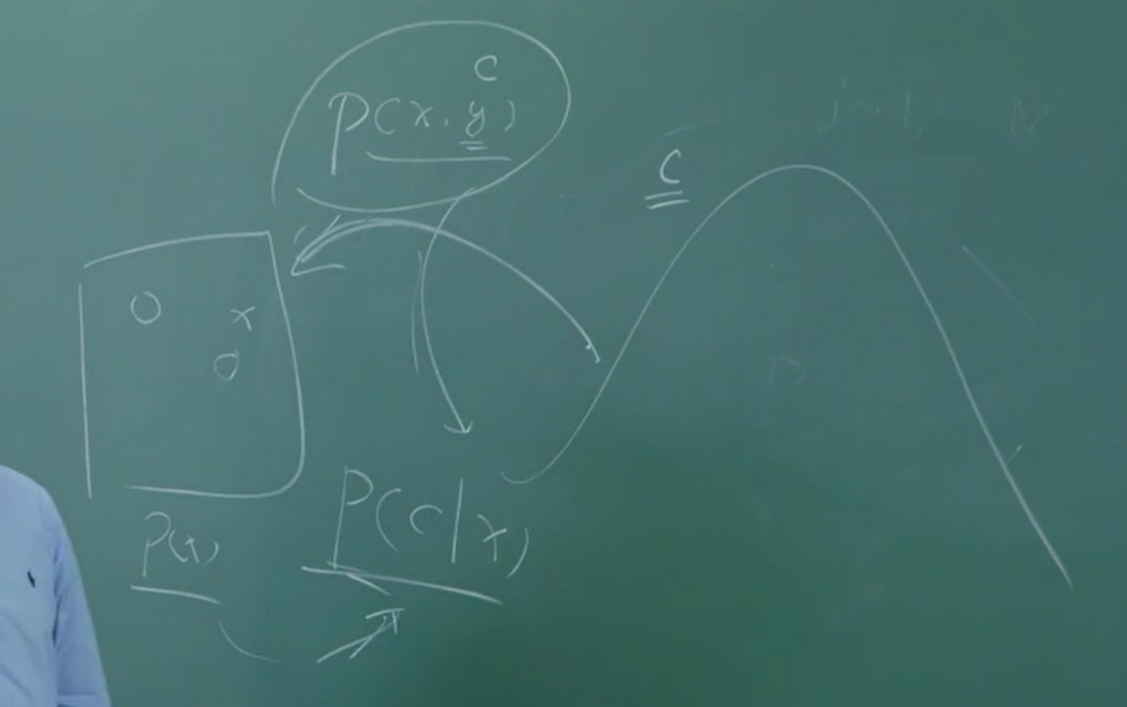 C
P(x, y)
C
O
x
O
P(x)
P(c|x)